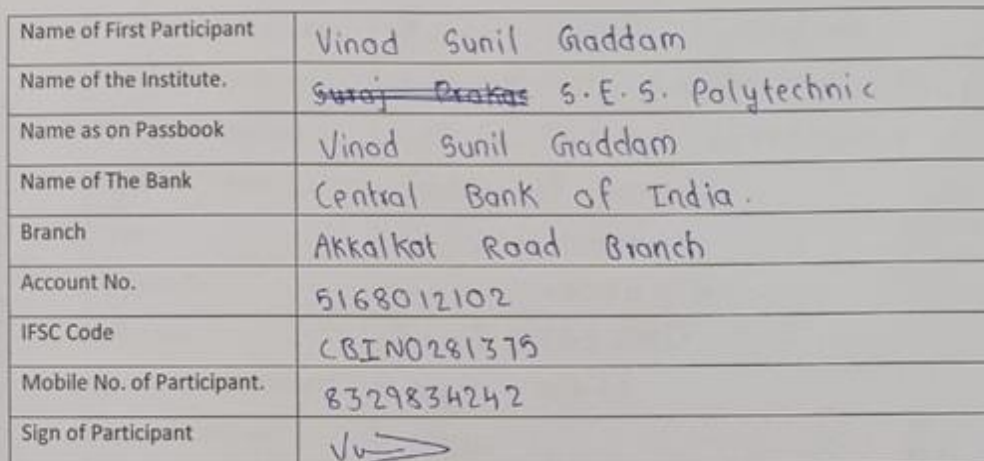 Name of First Participant Vinod Sunil Gaddam
Name of the Institute. Suraj Prakas S.E.S. Polytechnic
Name as on Passbook Vinod Sunil Gaddam
Name of The Bank Central Bank of India.
Branch Akkalkot Road Branch
Account No. 5168012102
IFSC Code CBIN0281375
Mobile No. of Participant. 8329834242
Sign of Participant